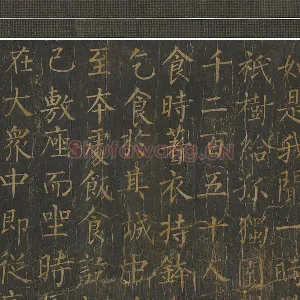 如是我聞一
祇樹給孤獨園
千二百五十人
食時著衣持鉢
乞食於其城中
至本處飯食訖
已敷座而坐時
在大衆中即從